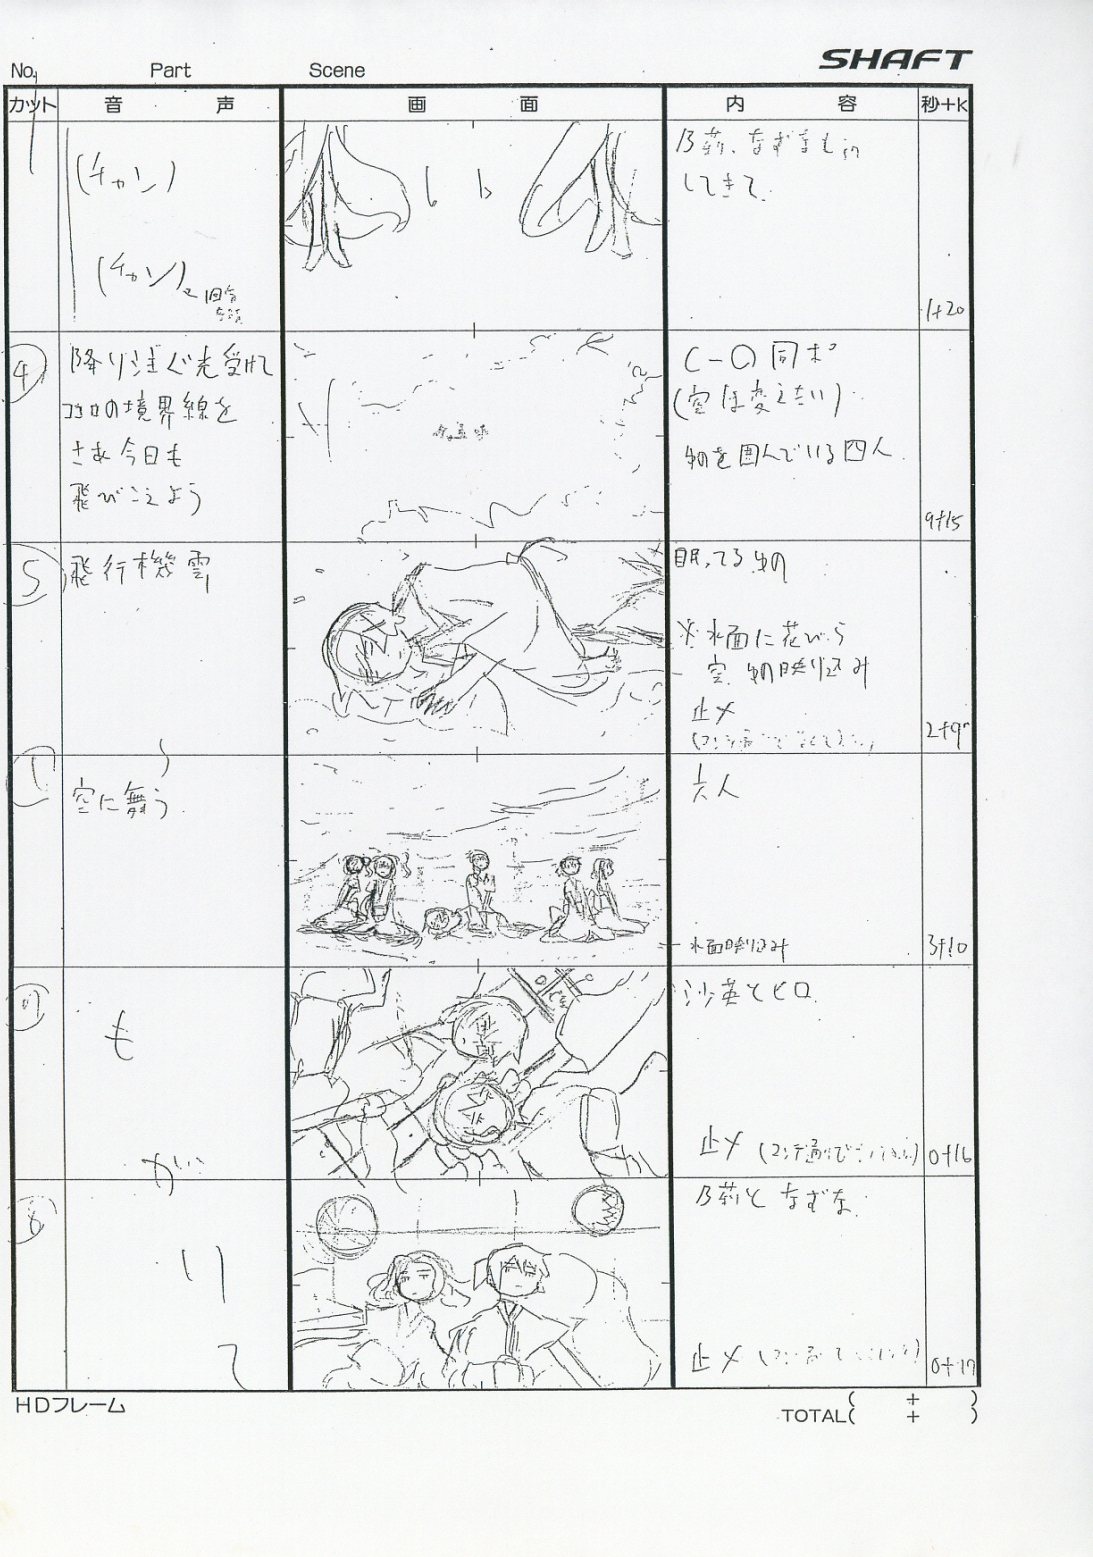 SHAFT
No. Part Scene
カット 音声 画面 内容 秒+K
(チャン)
(チャン)
乃莉、なずなもin
してきて.
1+20
4
降り注ぐ光受けて
ココロの境界線を
さあ今日も
飛びこえよう
C-①同ポ
(空は変えたい)
ゆのを囲んでいる四人
9+15
5
飛行機雲
眠ってるゆの
※水面に花びら
空、ゆの映り込み
止メ
2+9
空に舞う
六人
水面映り込み
3+10
も
沙英とヒロ
止メ
0+16
が
8
乃莉となずな
り
て
止メ
0+17
HDフレーム
( + )
TOTAL( + )